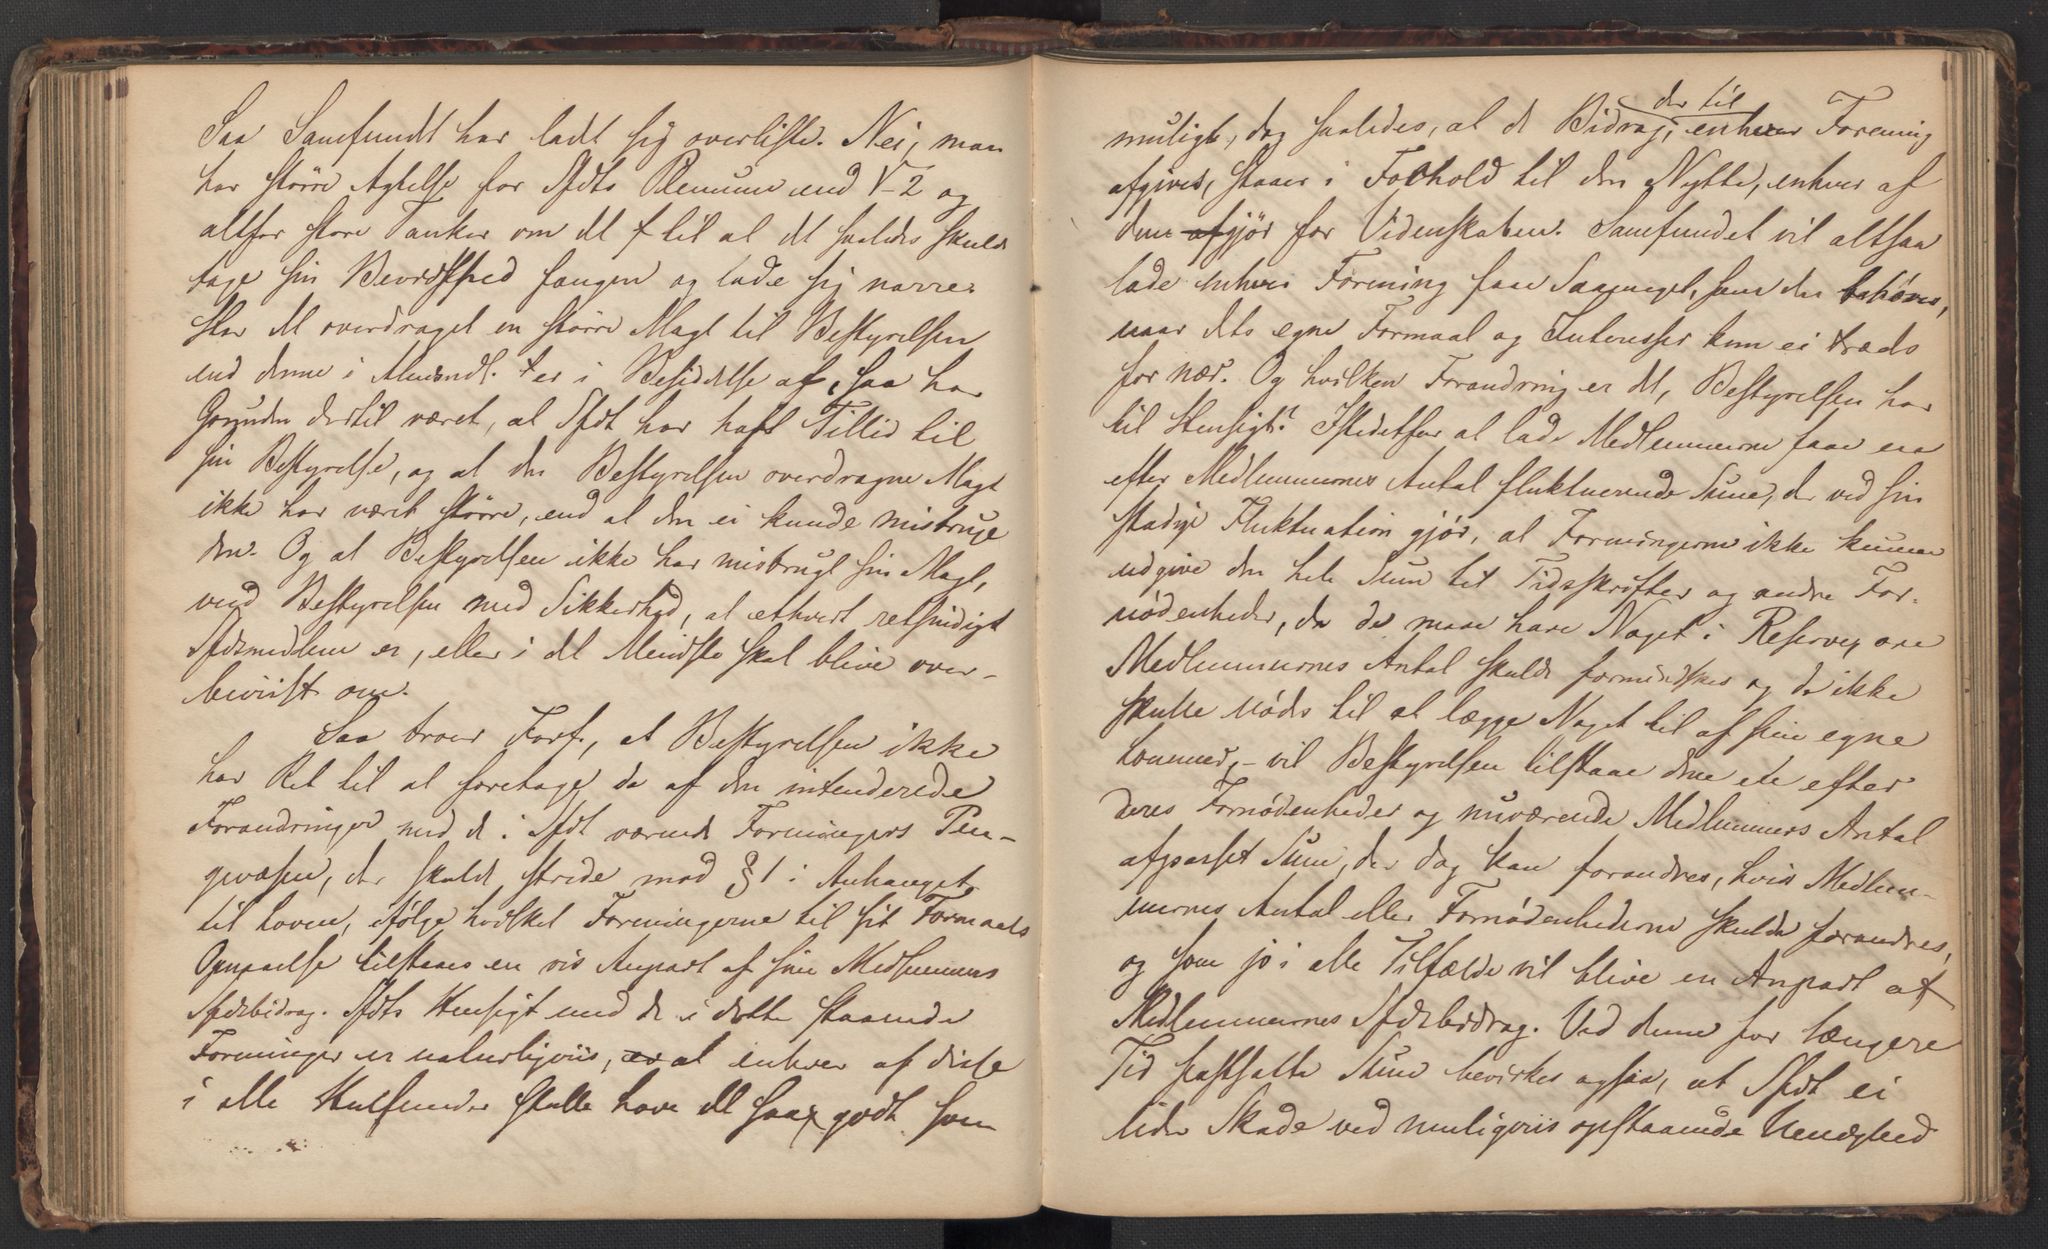 Saa Samfundt har ladt sig overliste. Nei, man
har større Agtelse for Sfdts Plenum end V-2 og
altfor store Tanker om dt t til at dt saaledes skulde
tage sin Bevidsthed fangen og lade sig narre.
Har dt overdraget en større Magt til Bestyrelsen
end denne i Almdl. er i Besiddelse af, saa har
Grunden dertil været, at Sfdt har haft Tillid til
sin Bestyrelse, og at den Bestyrelsen overdragne Magt
ikke har været større, end at den ei kunde misbruge
den. Og at Bestyrelsen ikke har misbrugt sin Magt,
veed Bestyrelsen med Sikkerhed, at ethvert retsindigt
Sfdsmedlem er, eller i dt Mindste skal blive over-
beviist om.
Saa troer Forf., at Bestyrelsen ikke
har Ret til at foretage de af den intenderede
Forandringer med de i Sfdt værende Foreningers Pen-
gevæsen, der skulde stride mod § 1 i Anhanget
til Loven, ifølge hvilket Foreningerne til sit Formaals
Opnaaelse tilstaaes en vis Anpart af sine Medlemmers
Sfdsbidrag. Sfdts Hensigt med de i dette staaende
Foreninger er naturligviis, at enhver af disse
i alle Henseender skulle have dt saa godt som
muligt, dog saaledes, at de Bidrag, der til enhver Forening
afgives, staaer i Forhold til den Nytte, enhver af
dem gjør for Videnskaben. Samfundet vil altsaa
lade enhver Forening faae Saameget, som den behøver,
naar dets egne Formaal og Interesser kun ei træds
for nær. Og hvilken Forandring er dt, Bestyrelsen har
til Hensigt? Istedetfor at lade Medlemmerne faae en
efter Medlemmernes Antal fluktuerende Sum, der ved sin
stadige Fluktuation gjør, at Foreningerne ikke kunne
udgive den hele Sum til Tidsskrifter og andre For-
nødenheder, da de maae have Noget i Reserve, om
Medlemmernes Antal skulde formindskes og de ikke
skulle nødes til at lægge Noget til af sine egne
Lommer, – vil Bestyrelsen tilstaae dem en efter
deres Fornødenheder og nuværende Medlemmers Antal
afpasset Sum, der dog kan forandres, hvis Medlem-
mernes Antal eller Fornødenhederne skulde forandres,
og som jo i alle Tilfælde vil blive en Anpart af
Medlemmernes Sfdsbidrag. Ved denne for længere
Tid fastsatte Sum bevirkes ogsaa, at Sfdt ei
lider Skade ved muligviis opstaaende Uenighed